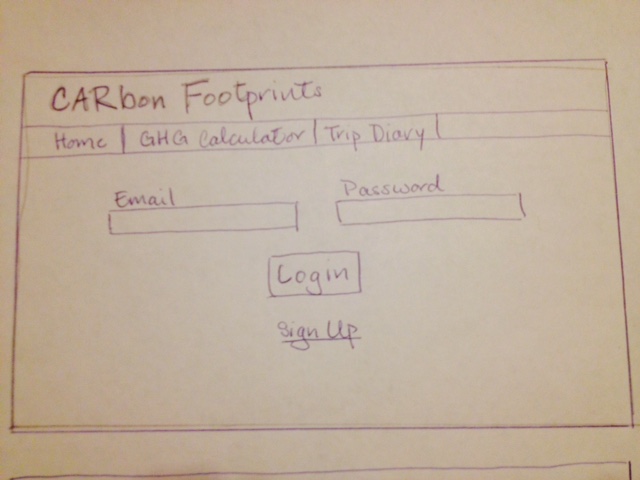 CARbon Footprints
Home | GHG Calculator | Trip Diary |
Email Password
Login
Sign Up